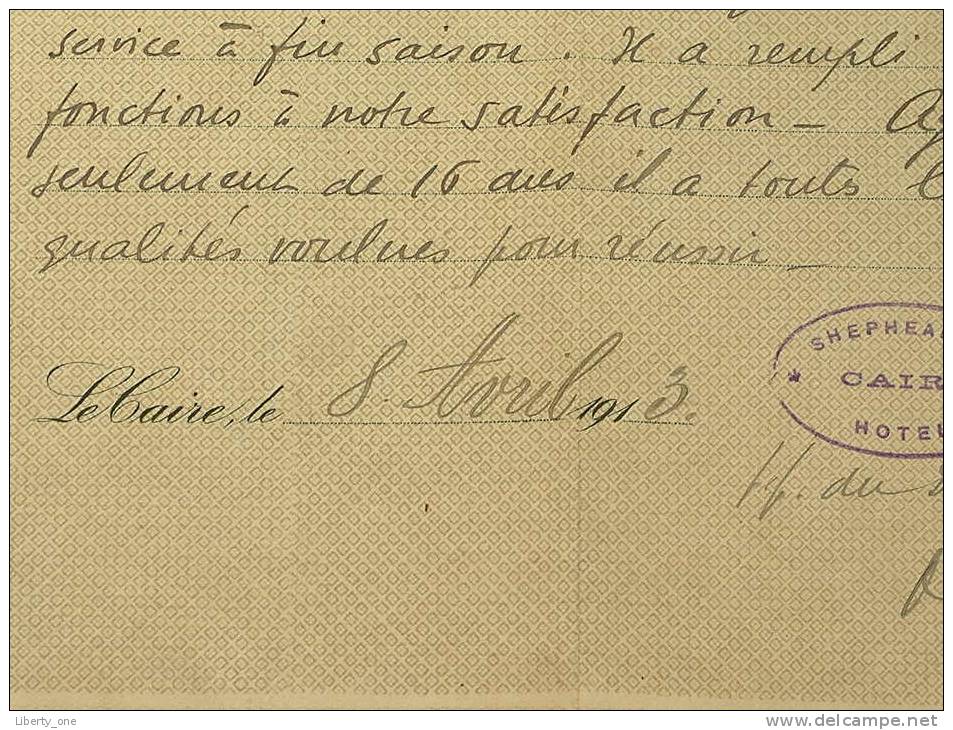 service à fin saison. Il a rempli
fonctions à notre satisfaction — Ag
seulement de 16 ans il a touts l
qualités voulues pour réussir —
Le Caire, le 8. Avril 1913.
SHEPHEA
CAIR
HOTEL
du
Liberty_one
www.delcampe.net